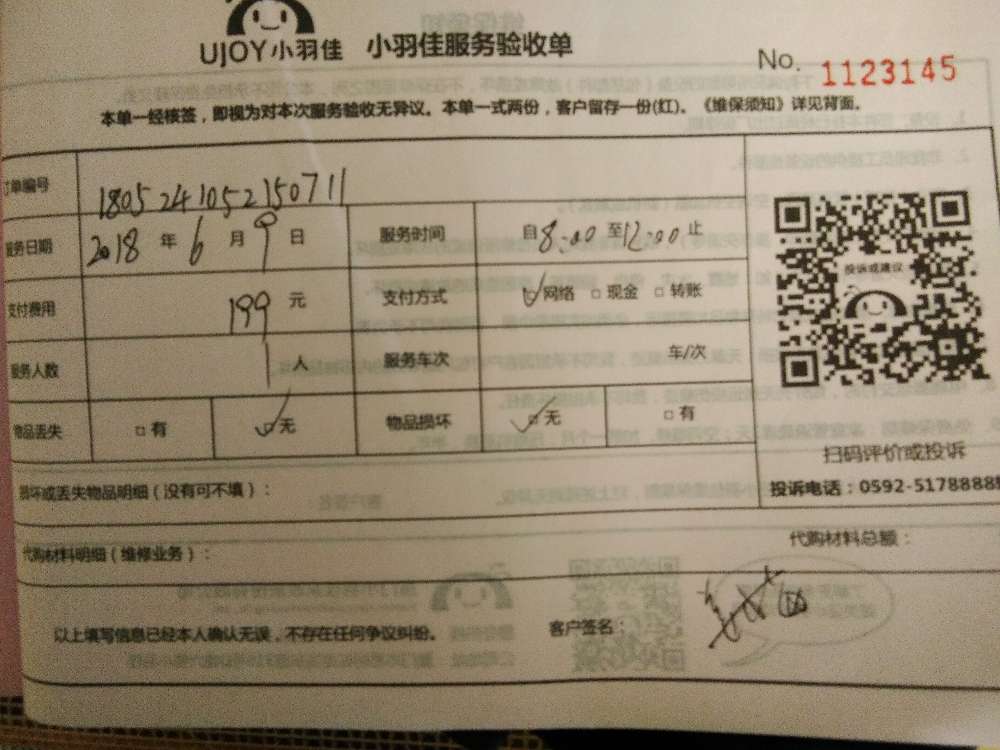 UJOY小羽佳 小羽佳服务验收单
No. 1123145
本单一经核签，即视为对本次服务验收无异议。本单一式两份，客户留存一份(红)。《维保须知》详见背面。
订单编号 180524105215071 1
服务日期 2018 年 6 月 9 日 服务时间 自8:00 至12:00 止
支付费用 199 元 支付方式 网络 现金 转账
服务人数 1 人 服务车次 车/次
物品丢失 有 无 物品损坏 无 有
投诉或建议
扫码评价或投诉
投诉电话：0592-5178888
损坏或丢失物品明细（没有可不填）：
代购材料明细（维修业务）： 代购材料总额：
以上填写信息已经本人确认无误，不存在任何争议纠纷。 客户签名：